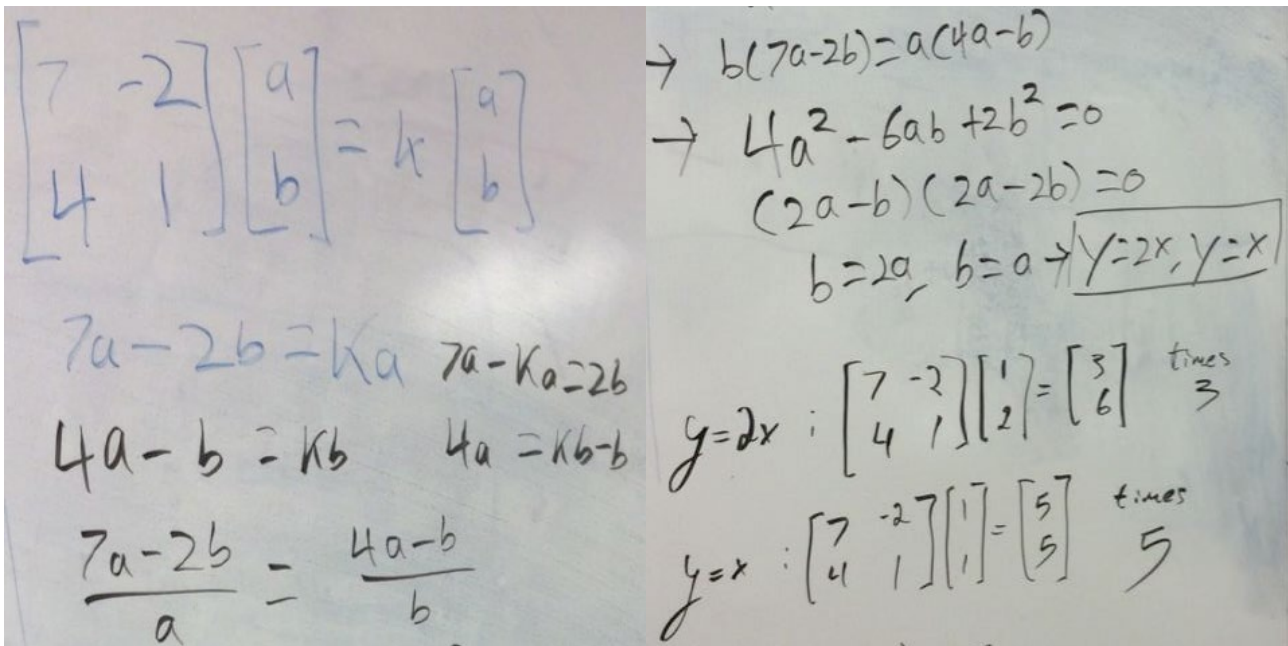 [7 -2; 4 1] [a; b] = k [a; b]
7a-2b=Ka 7a-Ka=2b
4a-b=Kb 4a=Kb-b
(7a-2b)/a = (4a-b)/b
→ b(7a-2b)=a(4a-b)
→ 4a²-6ab+2b²=0
(2a-b)(2a-2b)=0
b=2a, b=a → y=2x, y=x
y=2x : [7 -2; 4 1] [1; 2] = [3; 6] times 3
y=x : [7 -2; 4 1] [1; 1] = [5; 5] times 5